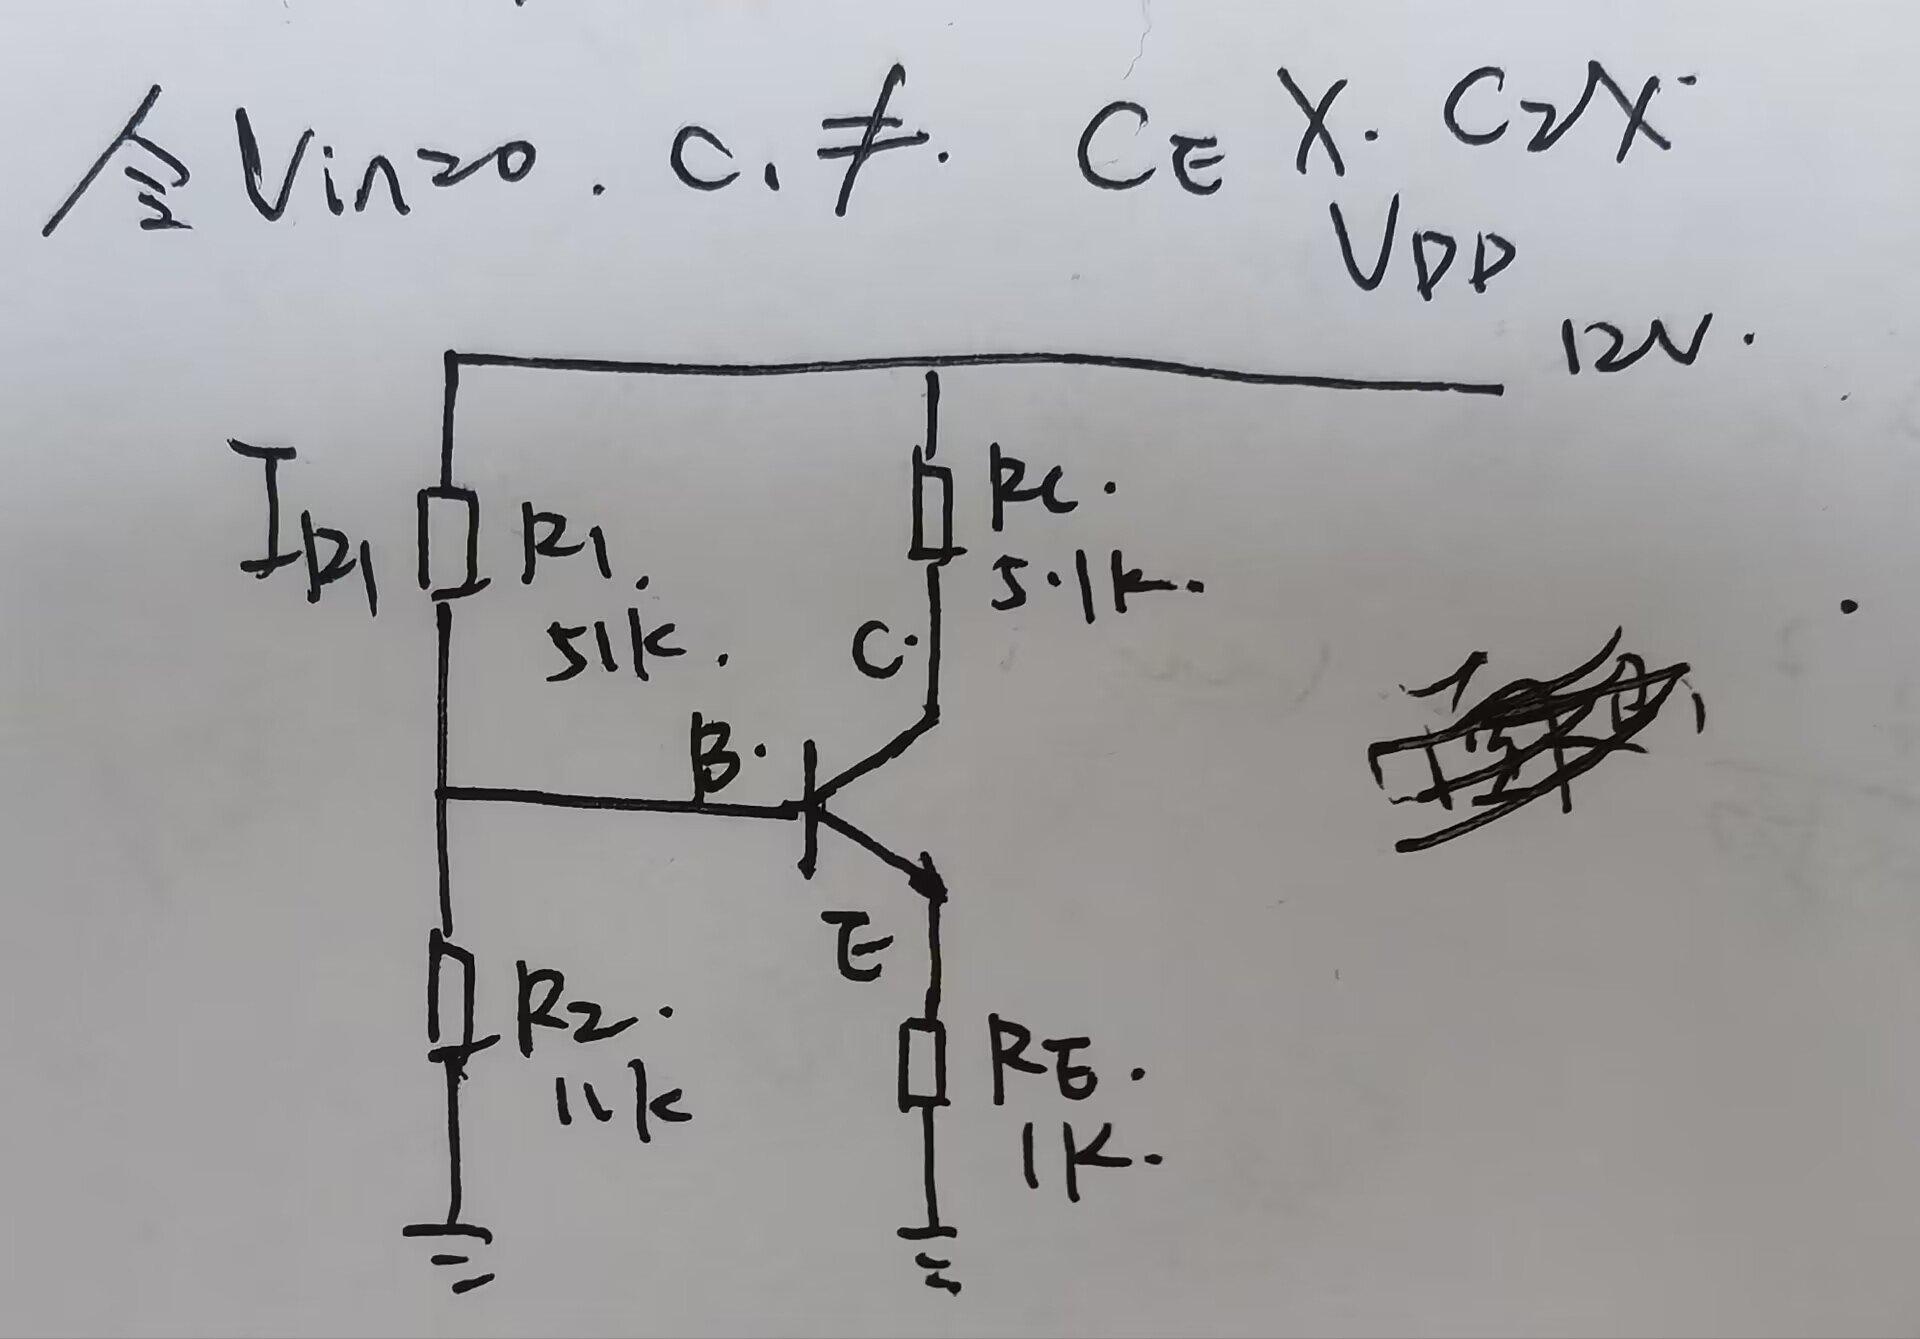 令Vin=0. C1开. CE X. C2X.
VDD
12V.
IR1
R1.
51K.
RC.
5.1K.
C.
B.
E
R2.
11K
RE.
1K.